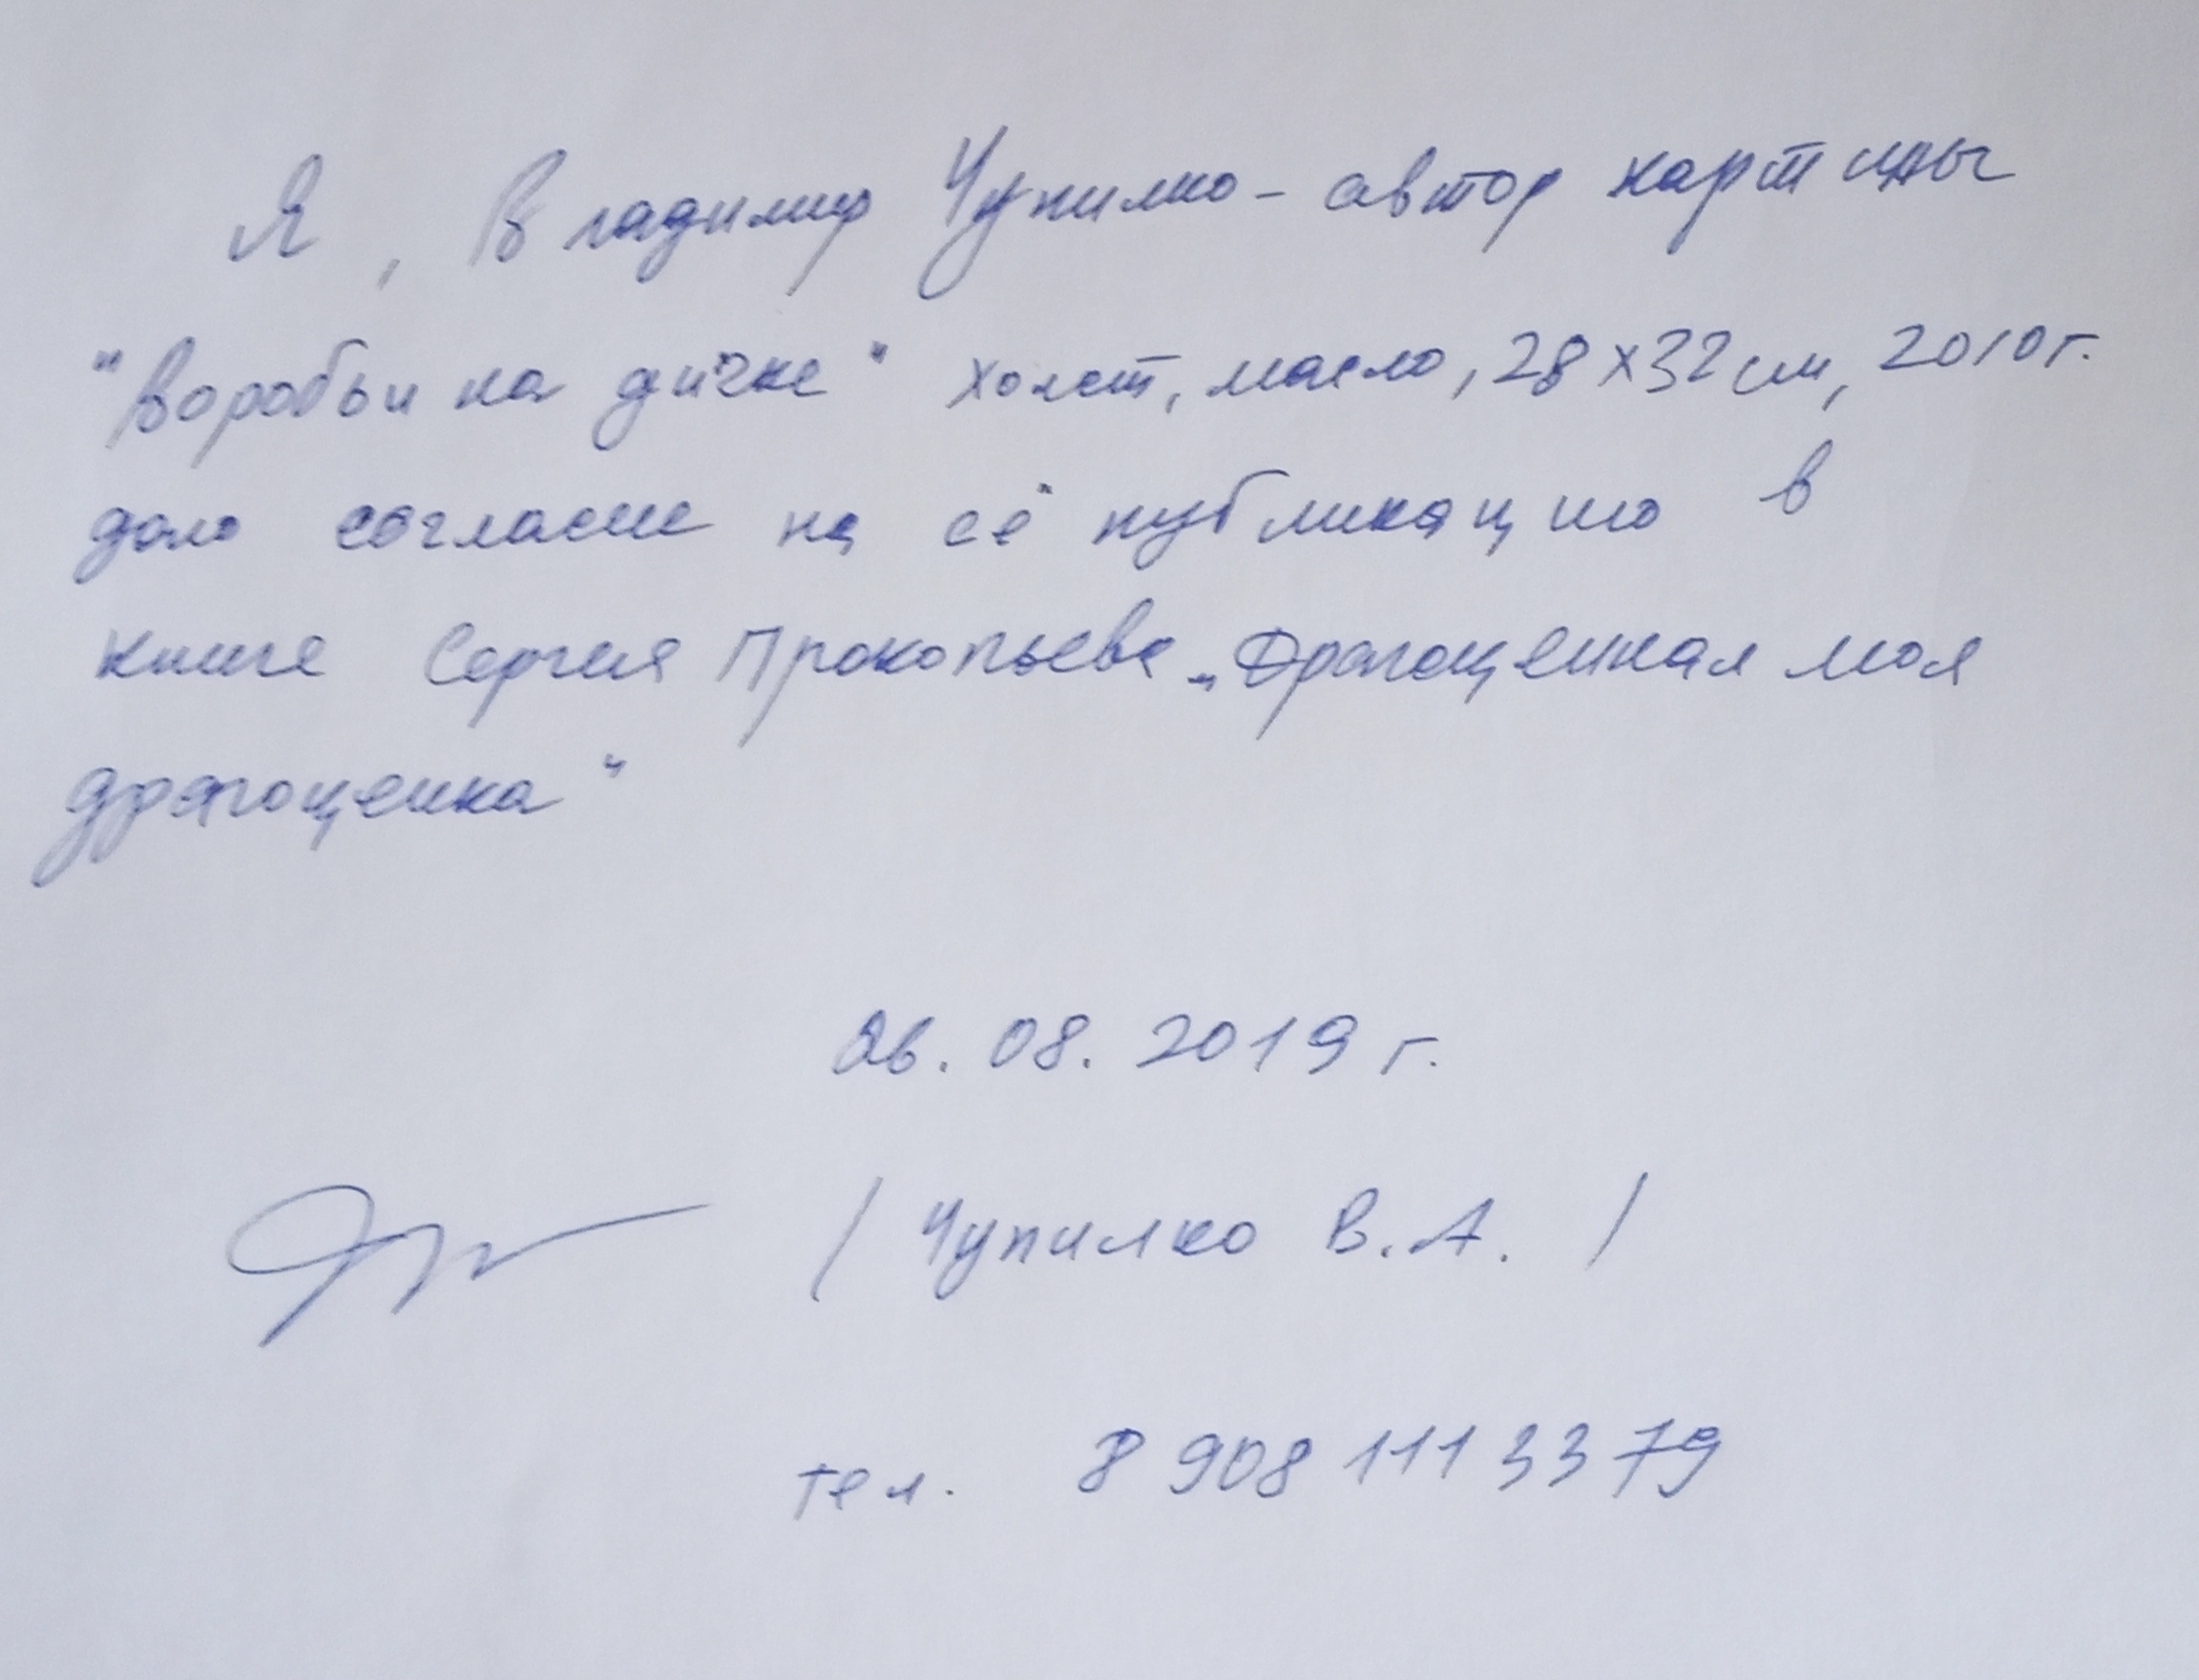 Я, Владимир Чупилко - автор картины
"Воробьи на дичке" холст, масло, 28х32 см, 2010 г.
даю согласие на её публикацию в
книге Сергея Прокопьева „Драгоценная моя
драгоценка"
26. 08. 2019 г.
/ Чупилко В. А. /
тел. 8 908 111 33 79